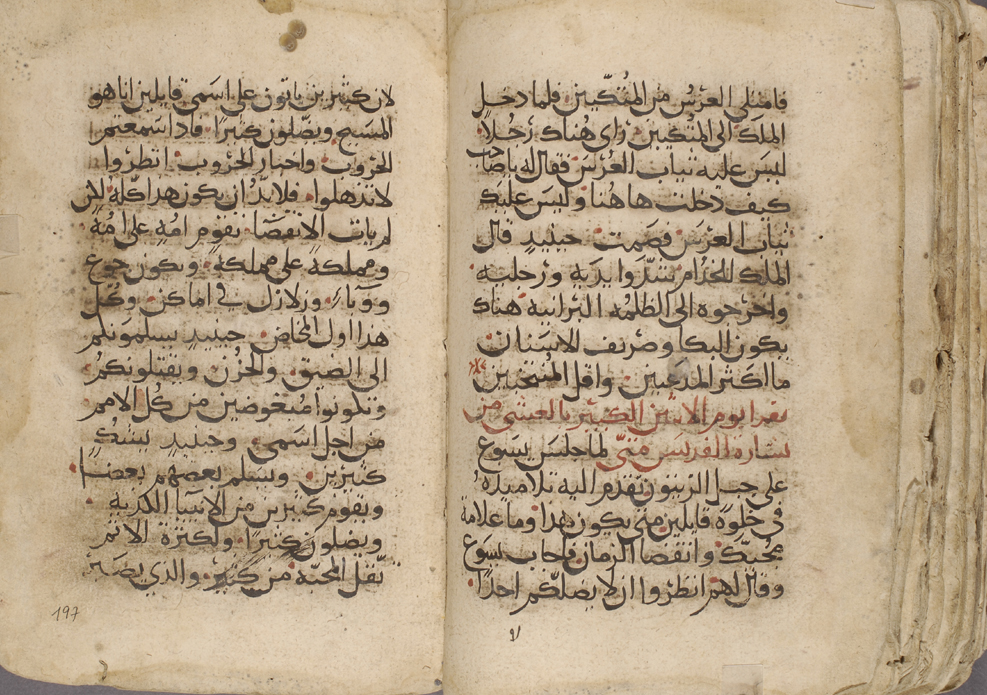 فامتلى العرس من المتكيين فلما دخل
الملك الى المتكيين راى هناك رجلا
ليس عليه تياب العرس فقال له ياصاحب
كيف دخلت هاهنا وليس عليك
تياب العرس فصمت حينيد قال
الملك للخدام شدوا يديه ورجليه
واخرجوه الى الظلمه البرانيه هناك
يكون البكا وصريف الاسنان
ما اكثر المدعيين واقل المنتخبين
يقرا يوم الاتنين الكبير بالعشي من
بشاره القديس متى لما جلس يسوع
على جبل الزيتون تقدم اليه تلاميده
في خلوة قايلين متى يكون هدا وما علامة
مجيك وانقضا الزمان فاجاب يسوع
وقال لهم انظروا ان لا يضلكم احدا
لان كتيرين ياتون على اسمي قايلين انا هو
المسيح ويضلون كتيرا فادا سمعتم
الحروب واخبار الحروب انظروا
لا تدهلوا فلابد ان يكون هدا كله لاكن
لم يات الانقضا تقوم امه على امة
ومملكة على مملكة ويكون جوع
ووباء وزلازل في اماكن وكل
هدا اول المخاض حينيد يسلمونكم
الى الضيق والحزن ويقتلونكم
وتكونوا مبغوضين من كل الامم
من اجل اسمي وحينيد يشك
كتيرين ويسلم بعضهم بعضا
ويقوم كتيرين من الانبيا الكدبه
ويضلون كتيرا ولكترة الاتم
تقل المحبه من كتير والدي يصبر
197